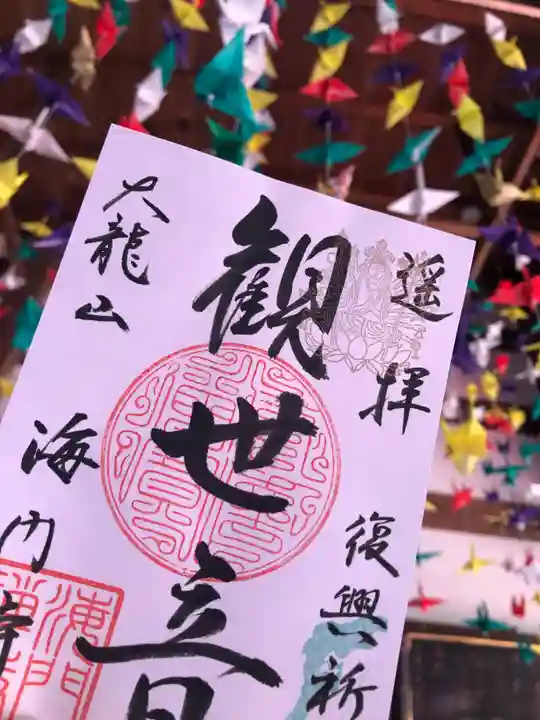 遥拝
復興祈
観世音
大龍山
海内寺